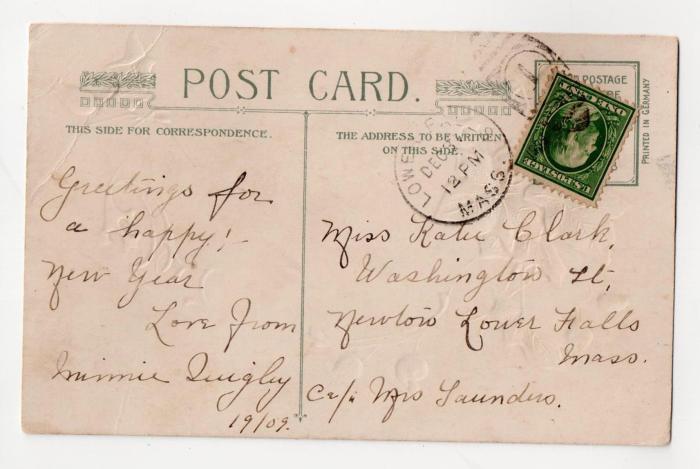 POST CARD.
THIS SIDE FOR CORRESPONDENCE.
THE ADDRESS TO BE WRITTEN
ON THIS SIDE.
POSTAGE
PRINTED IN GERMANY
U.S. POSTAGE
ONE CENT
DEC 31
12 PM
MASS
Greetings for
a happy!
New Year
Love From
Minnie Quigley
19/09.
Miss Katie Clark,
Washington St,
Newton Lower Falls
Mass.
C/o Mrs Saunders.